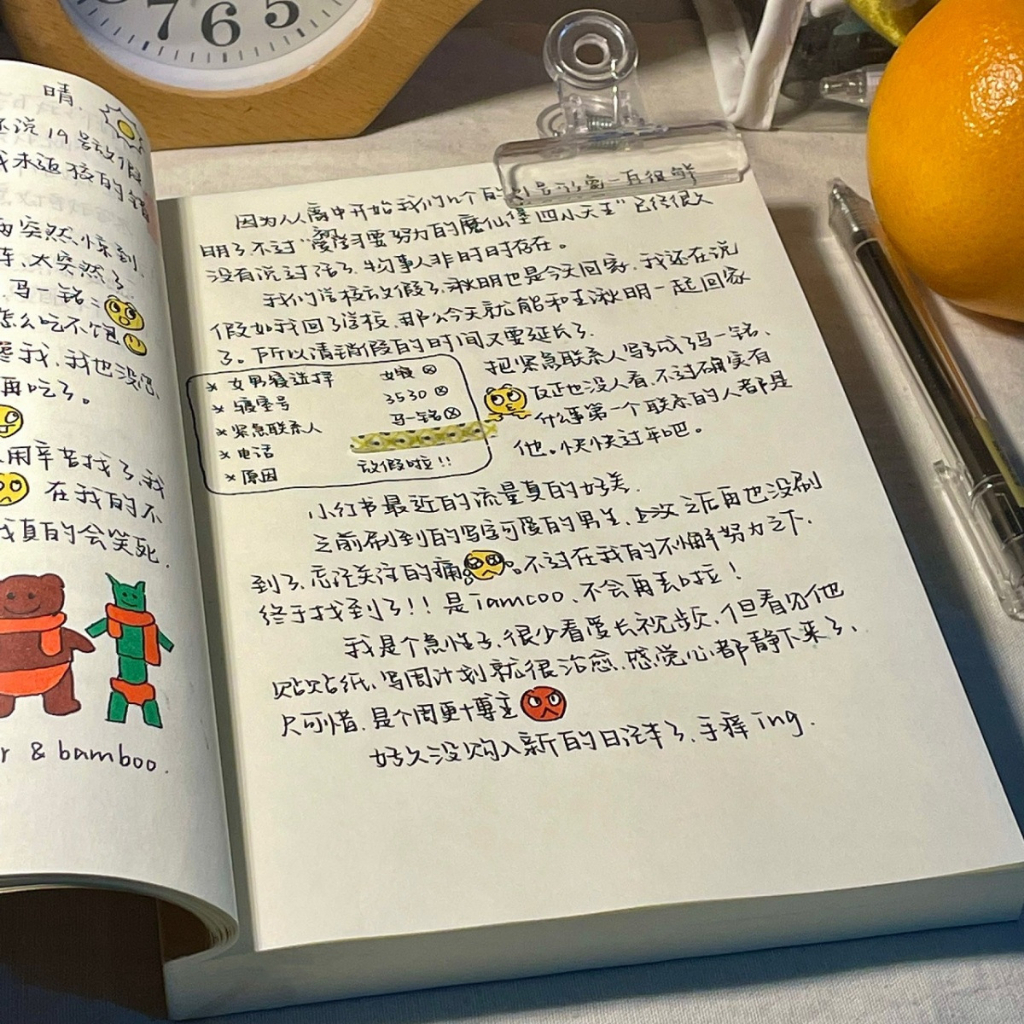 7 6 5
晴.
还说19号放假
我本返校的
突然,惊到.
太突然了.
马一铭=
怎么吃不饱
我,我也没
再吃了。
用辛苦找了,我
在我的不
真的会笑死.
r & bamboo.
因为从高中开始我们几个的一直很鲜
明了不过"爱学习要努力的魔仙堡四小天王"已经很久
没有说过话了,物事人非时时存在。
我们学校放假了,湫明也是今天回家,我还在说
假如我回了学校,那么今天就能和王湫明一起回家
了。所以请销假的时间又要延长了.
* 女男寝选择 女寝⊗
* 寝室号 3530⊗
* 紧急联系人 马一铭⊗
* 电话
* 原因 放假啦!!
把紧急联系人写成了马一铭、
反正也没人看,不过确实有
什么事第一个联系的人都是
他。快快过年吧。
小红书最近的流量真的好差.
之前刷到的写字可爱的男生,上次之后再也没刷
到了,忘记关注的痛。不过在我的不懈努力之下.
终于找到了!!是iamcoo、不会再丢啦!
我是个急性子,很少看爱长视频,但看见他
贴贴纸、写周计划就很治愈.感觉心都静下来了、
只可惜,是个周更博主
好久没购入新的日记本了,手痒ing.